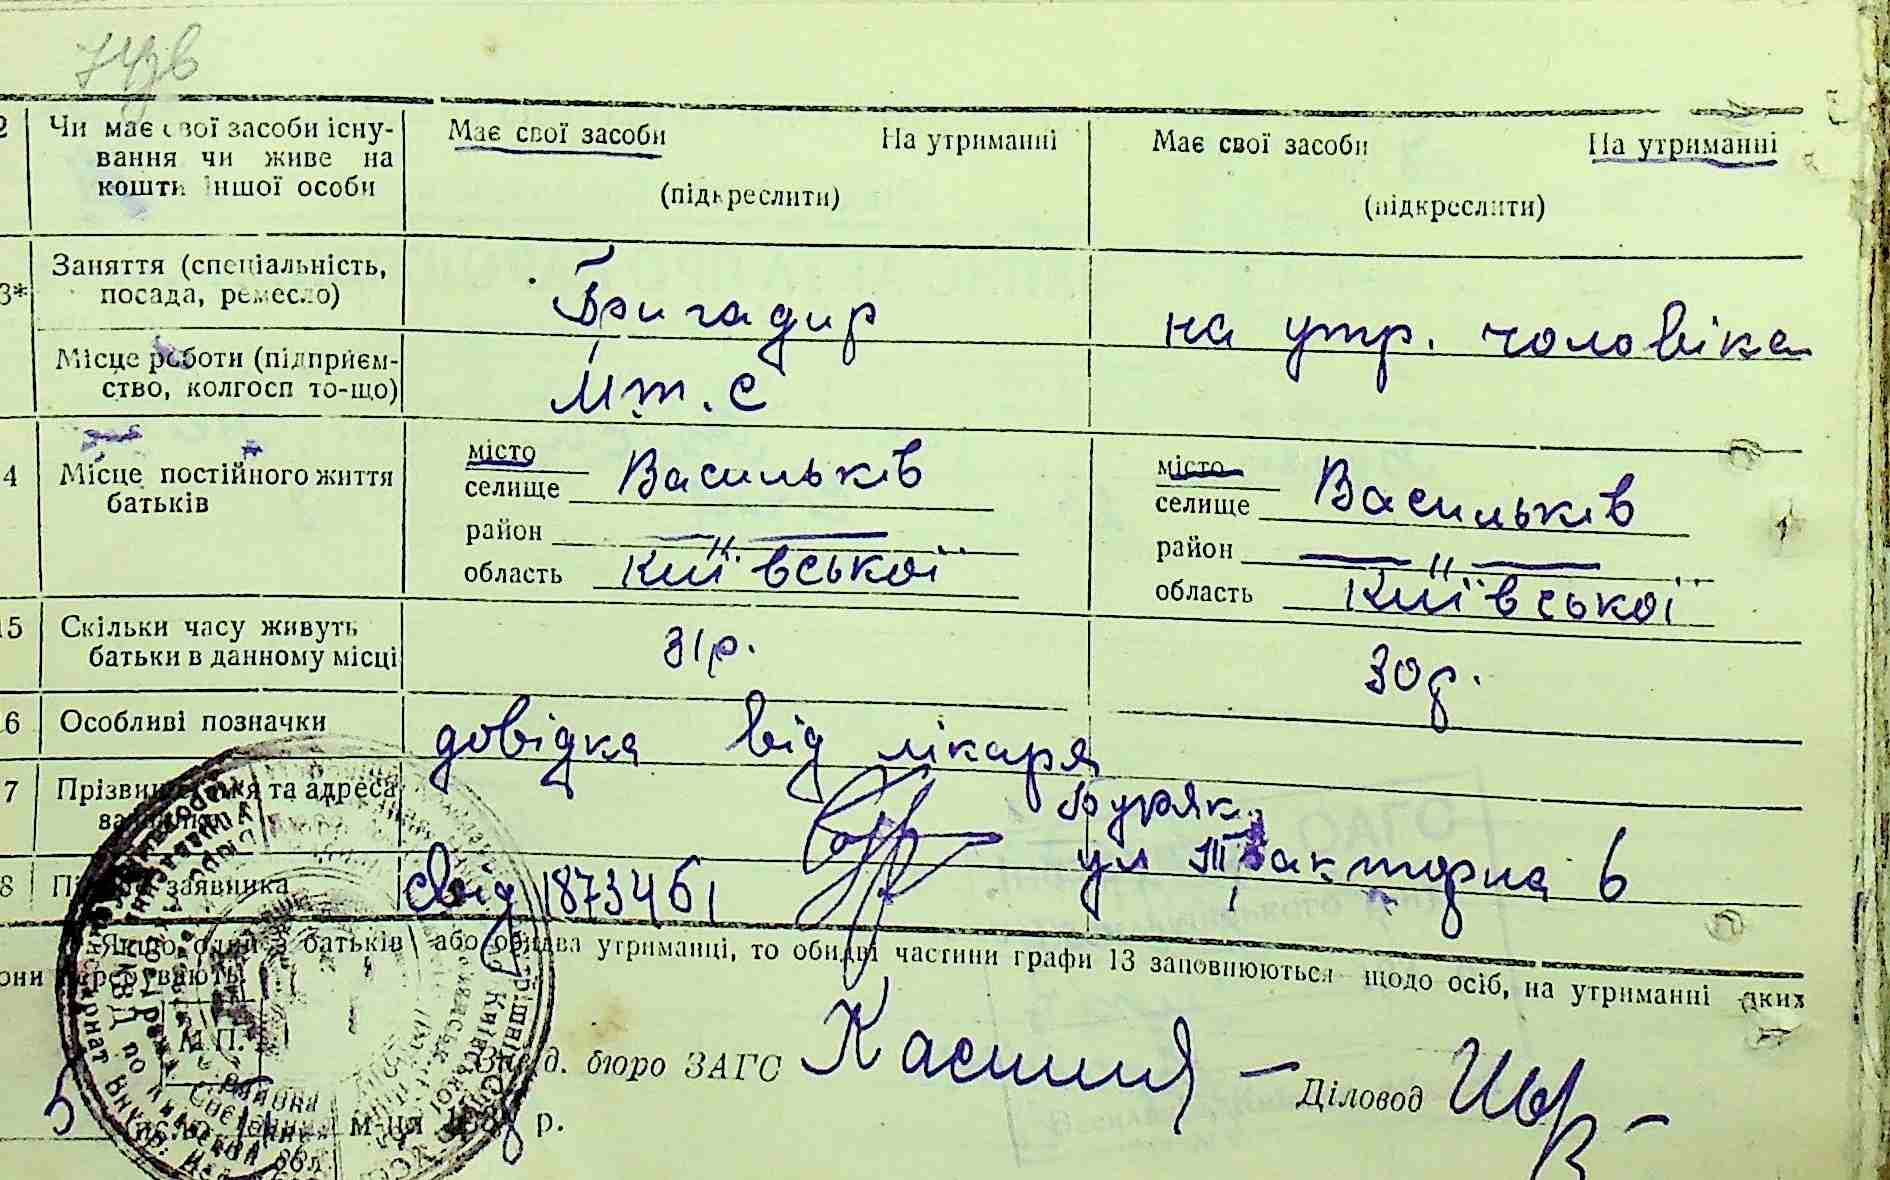 2 Чи має свої засоби існу- Має свої засоби На утриманні Має свої засоби На утриманні
вання чи живе на
кошти іншої особи (підкреслити) (підкреслити)
3* Заняття (спеціальність,
посада, ремесло) Бригадир на утр. чоловіка
Місце роботи (підприєм-
ство, колгосп то-що) М.т.с
4 Місце постійного життя
батьків
місто
селище Васильків
район — " —
область Київської
місто
селище Васильків
район — " —
область Київської
15 Скільки часу живуть
батьки в данному місці 31р. 30р.
6 Особливі позначки довідка від лікаря
7 та адреса Буряк
ул Тракторна 6
8 заявника свід 1873461
Якщо один з батьків або обидва утриманці, то обидві частини графи 13 заповнюються щодо осіб, на утриманні яких
вони перебувають.
М.П.
Завід. бюро ЗАГС Діловод
5 м-ця р.